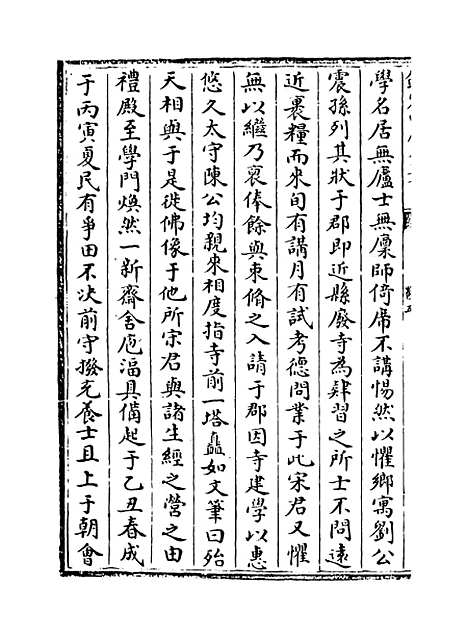 學名居無廬士無廩師倚席不講惕然以懼鄉寓劉公
震孫列其狀于郡即近縣廢寺為肄習之所士不問遠
近裹糧而來旬有講月有試考德問業于此宋君又懼
無以繼乃裒俸餘與束脩之入請于郡因寺建學以惠
悠久太守陳公均親來相度指寺前一塔矗如文筆曰殆
天相與于是徙佛像于他所宋君與諸生經之營之由
禮殿至學門煥然一新齋舍庖湢具備起于乙丑春成
于丙寅夏民有爭田不決前守撥充養士且上于朝會